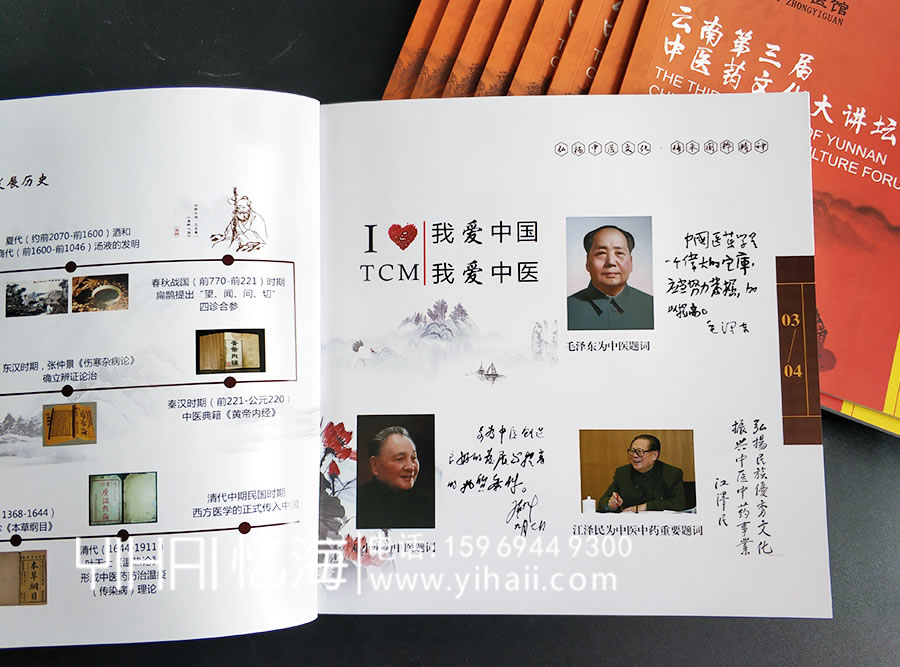 中医馆
ZHONGYIGUAN
云南第三届
中医药文化大讲坛
OF YUNNAN
发展历史
夏代(约前2070-前1600)酒和
商代(前1600-前1046)汤液的发明
春秋战国(前770-前221)时期
扁鹊提出“望、闻、问、切”
四诊合参
东汉时期,张仲景《伤寒杂病论》
确立辨证论治
秦汉时期(前221-公元220)
中医典籍《黄帝内经》
清代中期民国时期
西方医学的正式传入中国
1368-1644)
《本草纲目》
清代(1644-1911)
形成中医药防治温疫
(传染病)理论
本草綱目
弘扬中医文化·传承国粹精神
I
TCM
我爱中国
我爱中医
中国医药学是
一个伟大的宝库,
应当努力发掘,加
以提高。
毛泽东
毛泽东为中医题词
03
04
为中医创造
良好的发展与提高
的物质条件。
邓小平为中医题词
弘揚民族優秀文化
振興中医中药事業
江泽民
江泽民为中医中药重要题词
YIHAI 忆海
电话 159 6944 9300
www.yihaii.com